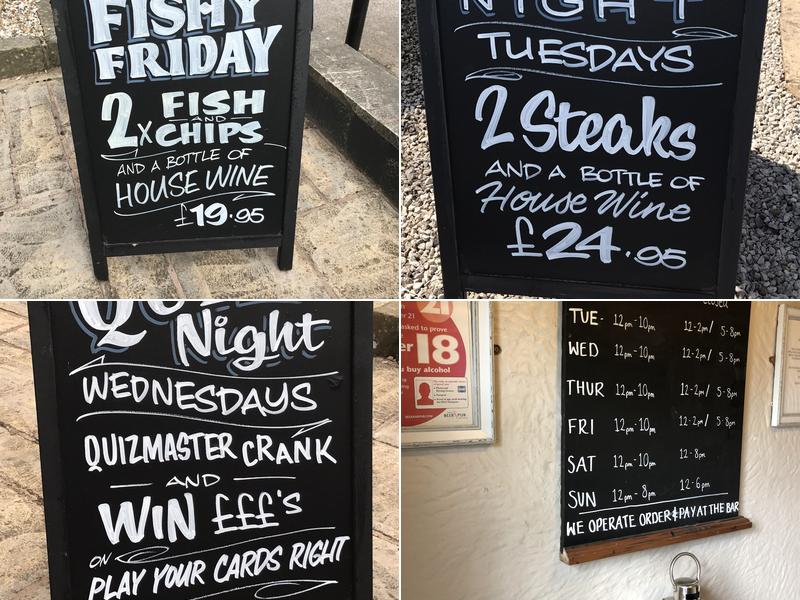 FISHY
FRIDAY
2 x FISH
AND
CHIPS
AND A BOTTLE OF
HOUSE WINE
£19.95
NIGHT
TUESDAYS
2 Steaks
AND A BOTTLE OF
House Wine
£24.95
Night
WEDNESDAYS
QUIZMASTER CRANK
AND
WIN £££'s
ON
PLAY YOUR CARDS RIGHT
21
asked to prove
18
u buy alcohol
Closed
TUE- 12pm-10pm 12-2pm/ 5-8pm
WED 12pm-10pm 12-2pm/ 5-8pm
THUR 12pm-10pm 12-2pm/ 5-8pm
FRI 12pm-10pm 12-2pm/ 5-8pm
SAT 12pm-10pm 12-8pm
SUN 12pm-8pm 12-6pm
WE OPERATE ORDER & PAY AT THE BAR